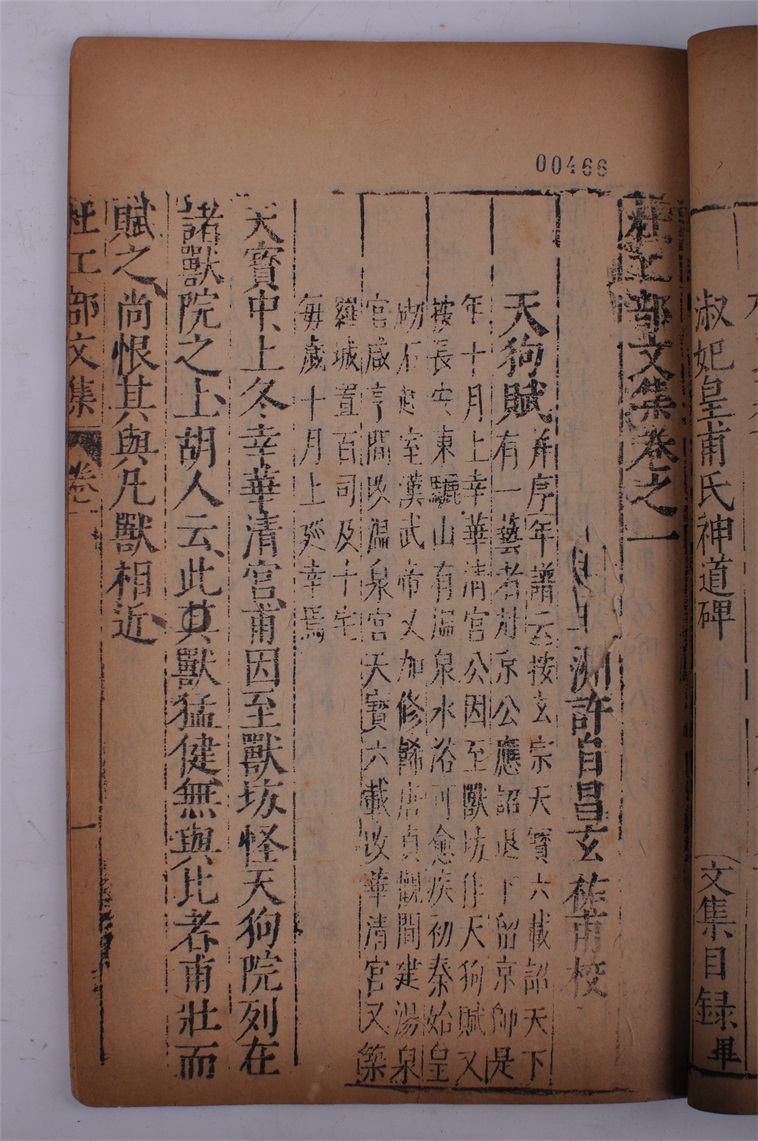 淑妃皇甫氏神道碑
文集目録畢
00466
杜工部文集卷之一
洲許自昌玄祐甫校
天狗賦
并序年譜云按玄宗天寶六載詔天下
有一藝者赴京公應詔退下留京師是
年十月上幸華清宮公因至獸坊作天狗賦又
按長安東驪山有溫泉水浴可愈疾初秦始皇
砌石起室漢武帝又加修餙唐貞觀間建湯泉
宮咸亨間改温泉宮天寶六載改華清宮又築
羅城置百司及十宅
毎歲十月上廵幸焉
天寶中上冬幸華清宮甫因至獸坊怪天狗院列在
諸獸院之上胡人云此其獸猛健無與比者甫壯而
賦之尚恨其與凡獸相近
杜工部文集 卷一 一